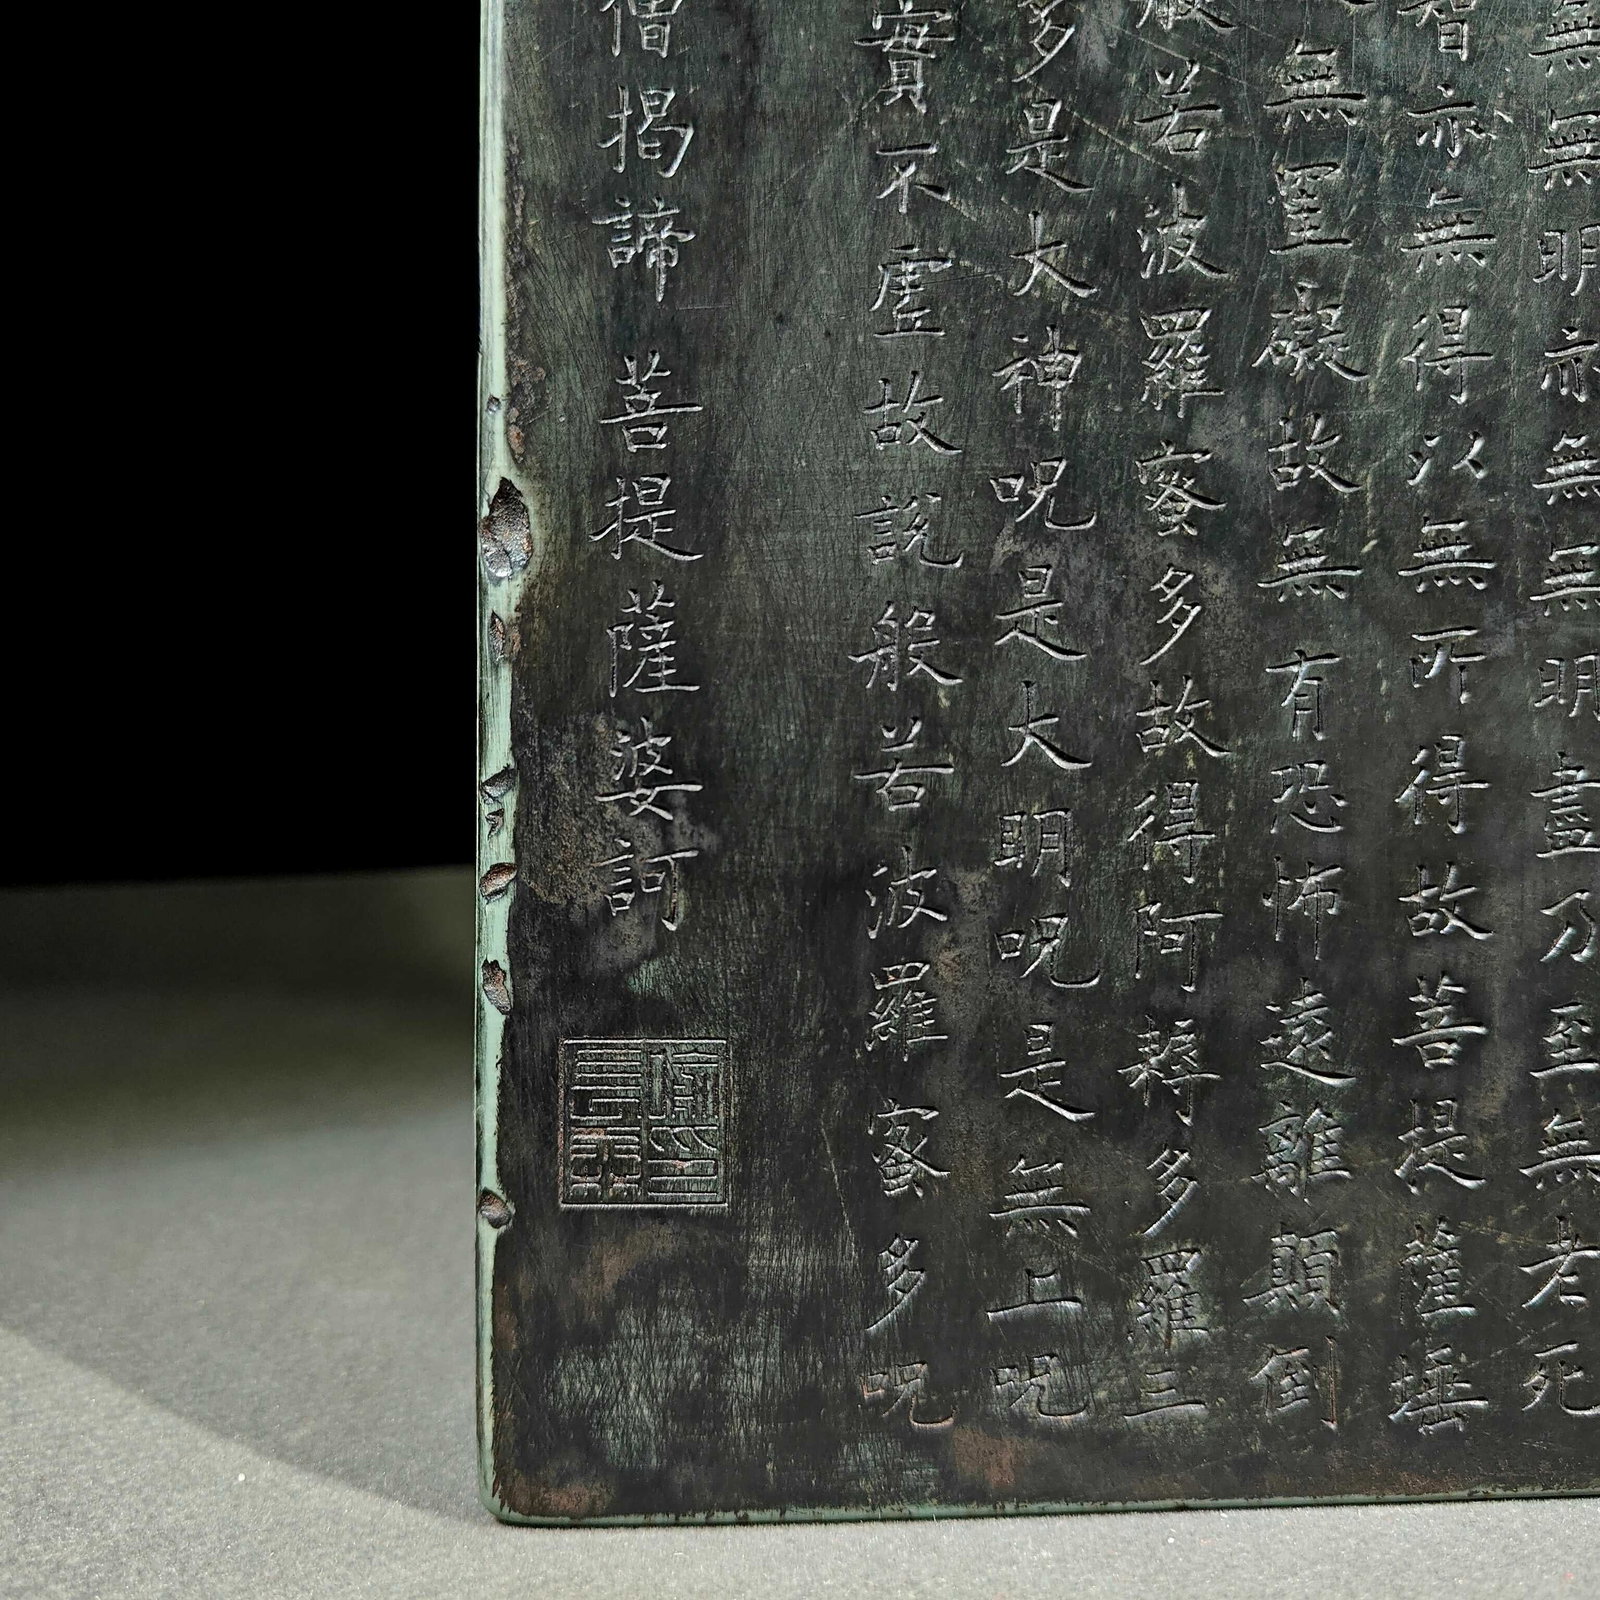 無無明亦無無明盡乃至無老死
智亦無得以無所得故菩提薩埵
無罣礙故無有恐怖遠離顛倒
般若波羅蜜多故得阿耨多羅三
多是大神呪是大明呪是無上呪
實不虛故說般若波羅蜜多呪
僧揭諦 菩提薩婆訶